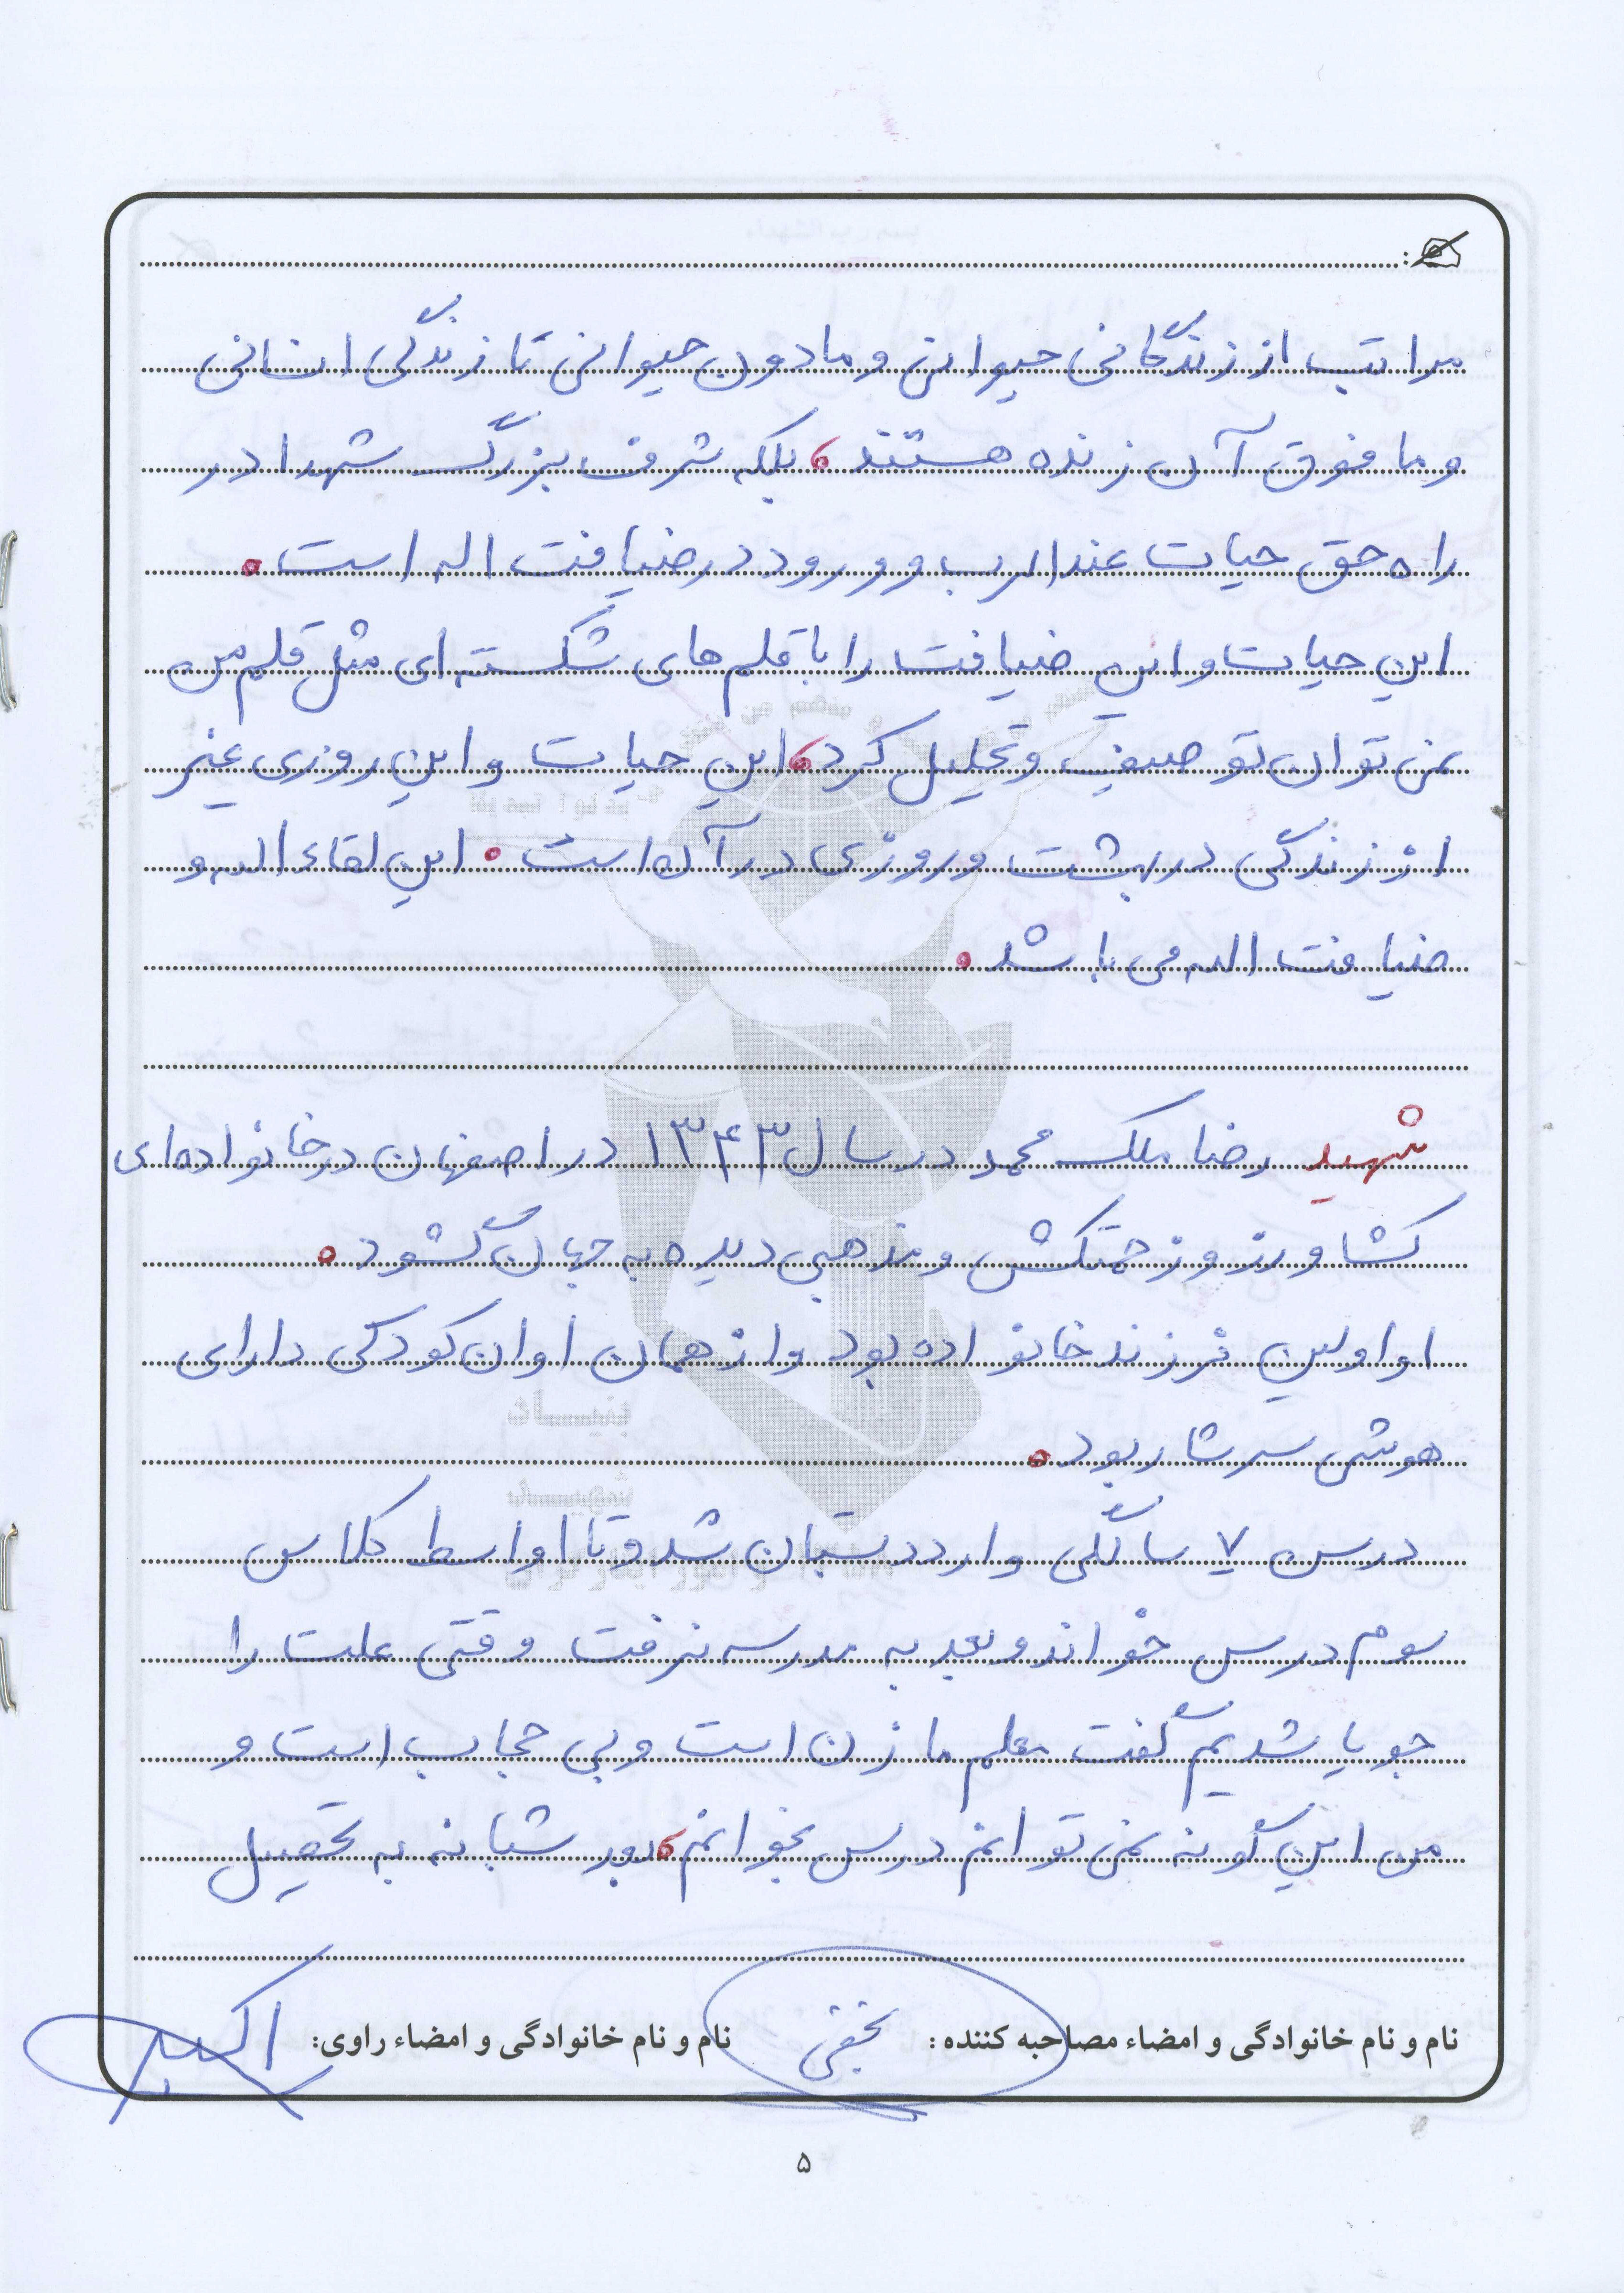 مراتب از زندگانی حیوانی و مادون حیوانی تا زندگی انسانی
و مافوق آن زنده هستند، بلکه شرف بزرگ شهدا در
راه حق حیات عندالرب و ورود در ضیافت اله است.
این حیات و این ضیافت را با قلم های شکسته ای مثل قلم من
نمی توان توصیف و تحلیل کرد، این حیات و این روزی غیر
از زندگی در بهشت و روزی در آن است. این لقاء اله و
ضیافت اله می باشد.
شهید رضا ملک محمد در سال ۱۳۴۳ در اصفهان در خانواده ای
کشاورز و زحمتکش و مذهبی دیده به جهان گشود.
او اولین فرزند خانواده بود و از همان اوان کودکی دارای
هوشی سرشار بود.
در سن ۷ سالگی وارد دبستان شد و تا اواسط کلاس
سوم درس خواند و بعد به مدرسه نرفت وقتی علت را
جویا شدیم گفت معلم ما زن است و بی حجاب است و
من این گونه نمی توانم درس بخوانم، بعد شبانه به تحصیل
نام و نام خانوادگی و امضاء مصاحبه کننده: نام و نام خانوادگی و امضاء راوی:
۵
بنیاد
شهید